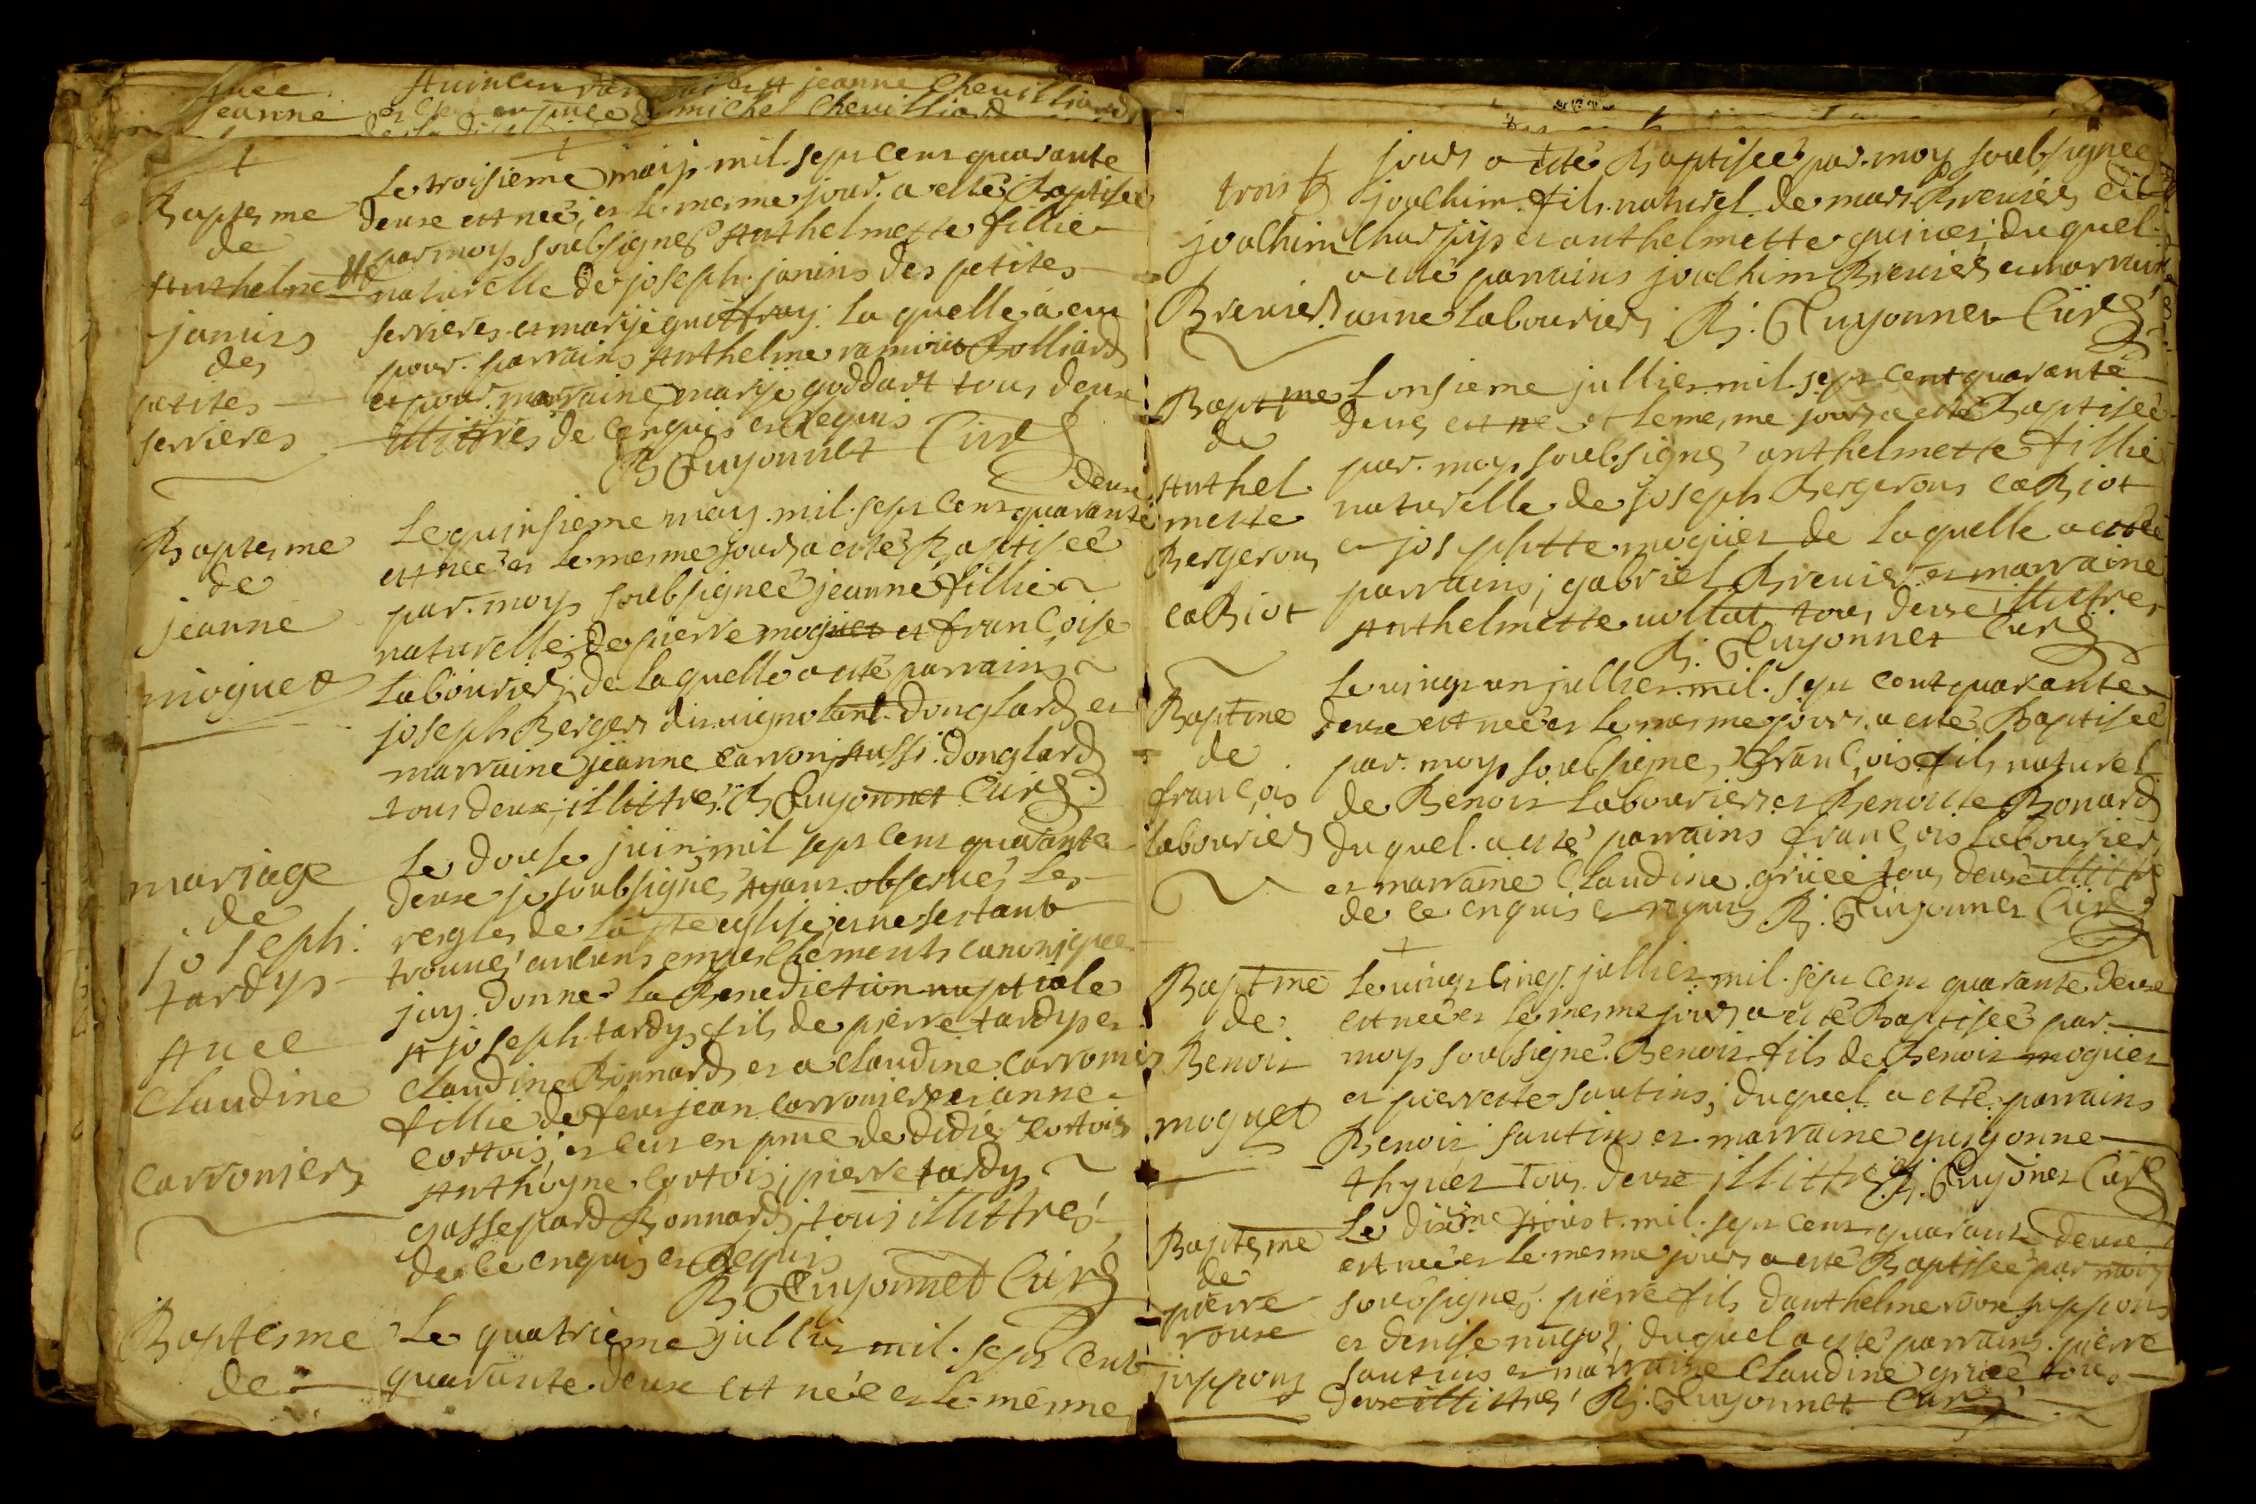 avec
jeanne
jeanne Chevilliard
michel Chevilliard
Baptesme
de
Anthelmette
janins
des
petites
serrieres
Le troisieme maij mil sept cens quarante
deuxe est neé, et le mesme jour a esté Baptiseé
par moy soubsigné Anthelmette fillie
naturelle de joseph janins des petites
serrieres et marije guiffray. La quelle a eu
pour parrains Anthelme ramoúe Bolliard
et pour marraine marije goddart tous deux
illittrés de ce enquis et requis
B Guyonnet Curé
Baptesme
de
jeanne
moguet
Le quinsieme may mil sept cens quarante deuxe
est neé et le mesme jour a esté Baptiseé
par moy soubsigneé jeanne fillie
naturelle de pierre moguet et francoise
Labourier, de La quelle a esté parrains
joseph Berger du uignolant donglard et
marraine jeanne Carron Aussi donglard
tous deux illittrés. B Guyonnet Curé
mariage
de
joseph
tardy
Avec
Claudine
Carronier
Le douse juin mil sept cens quarante
deuxe je soubsigné Ayant observé Les
regles de La ste eglise, et ne sestant
trouué aucuns empeschements canonique
jay donné La Benediction nuptiale
A joseph tardy fils de pierre tardy et
Claudine Bonnard et a Claudine Carronier
fillie de feu jean Carronier et anne
Cortois, et ceu en pnce de didier Cortois
Anthoyne Cortois, pierre tardy
gasspard Bonnard, tous illittrés
de ce enquis et requis
B Guyonnet Curé
Baptesme
de
Le quatrieme jullier mil sept cent
quarante deuxe est neé et le mesme
trois
joachim
Brevier
jours a esté Baptiseé par moy soubsigneé
joachim fils naturel de mars Brevier dit
Charpy et anthelmette guinet, duquel
a esté parrains joachim Brevier et marraine
anne Labourier B. Guyonnet Curé
Baptme
de
Anthel
mette
Bergerons
caBiot
Lonsieme jullier mil sept cent quarante
deux est ne et le mesme jour a esté Baptiseé
par moy soubsigné anthelmette fillie
naturelle de joseph Bergerons caBiot
et josephtte moguet de Laquelle a esté
parrains, gabriel Brevier et marraine
Anthelmette uollat tous deuxe illittrés
B. Guyonnet Curé
Baptme
de
francois
Labourier
Le uingt un jullier mil sept cent quarante
deuxe est neé et le mesme jour a esté Baptiseé
par moy soubsigné francois fils naturel
de Benoit Labourier et Benoite Bonard
duquel a esté parrains francois Labourier
et marraine Claudine grueé tous deuxe illittrés
de ce enquis et requis B. Guyonnet Curé
Baptme
de
Benoit
moguet
Le uingt cinq jullier mil sept cent quarante deuxe
est neé et le mesme jour a esté Baptiseé par
moy soubsigné Benoit fils de Benoit moguet
et pierrette santins, duquel a esté parrains
Benoit santins et marraine guigonne
thyuet tous deuxe illittrés B. Guyonnet Curé
Baptesme
de
pierre
rouxe
juppons
Le dixme Aoust mil sept cent quarante deuxe
est neé et le mesme jour a esté Baptiseé par moy
soubsigné pierre fils danthelme rouxe juppons
et denise nugos, duquel a esté parrains pierre
santins et marraine Claudine grueé tous
deuxe illittrés B. Guyonnet Curé